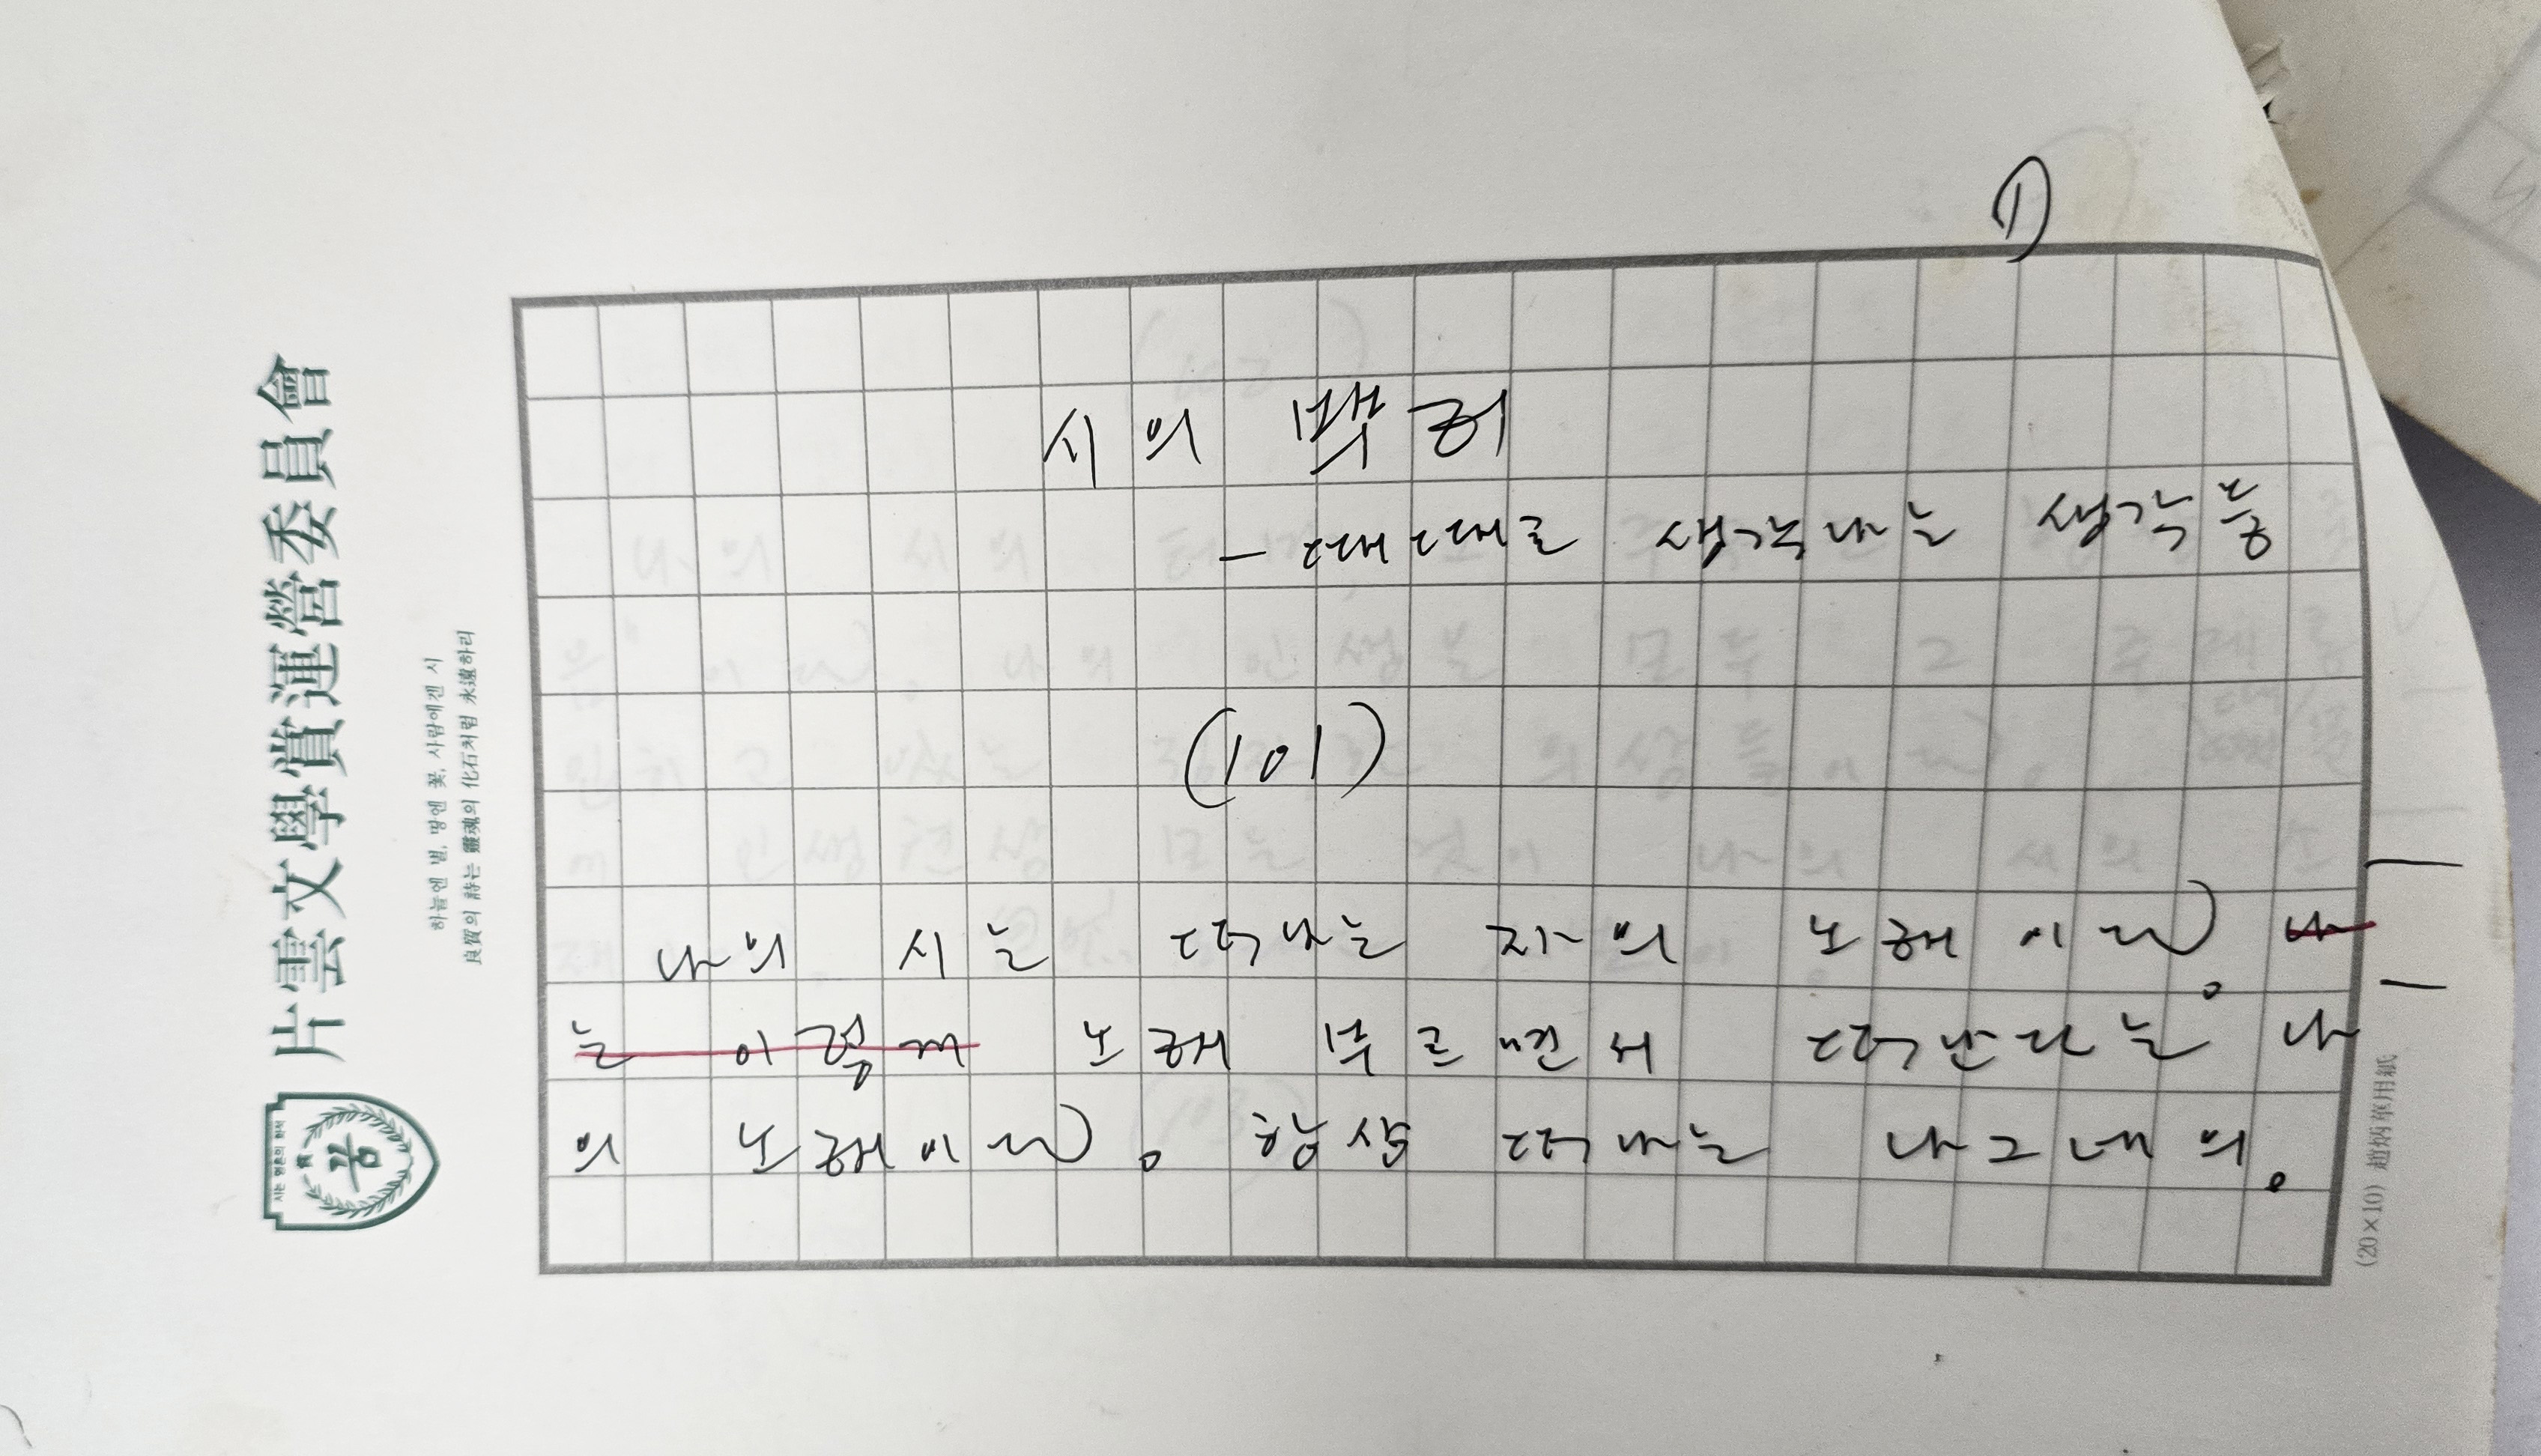 ①
시의
— 때때로 생각나는 생각들
(101)
나의 시는 떠나는 자의 노래이다. 나
는 이렇게 노래 부르면서 떠난다는 나
의 노래이다. 항상 떠나는 나그네의.
片雲文學賞運營委員會
하늘엔 별, 땅엔 꽃, 사람에겐 시
良質의 詩는 靈魂의 化石처럼 永遠하리
꿈
(20×10) 趙炳華用紙